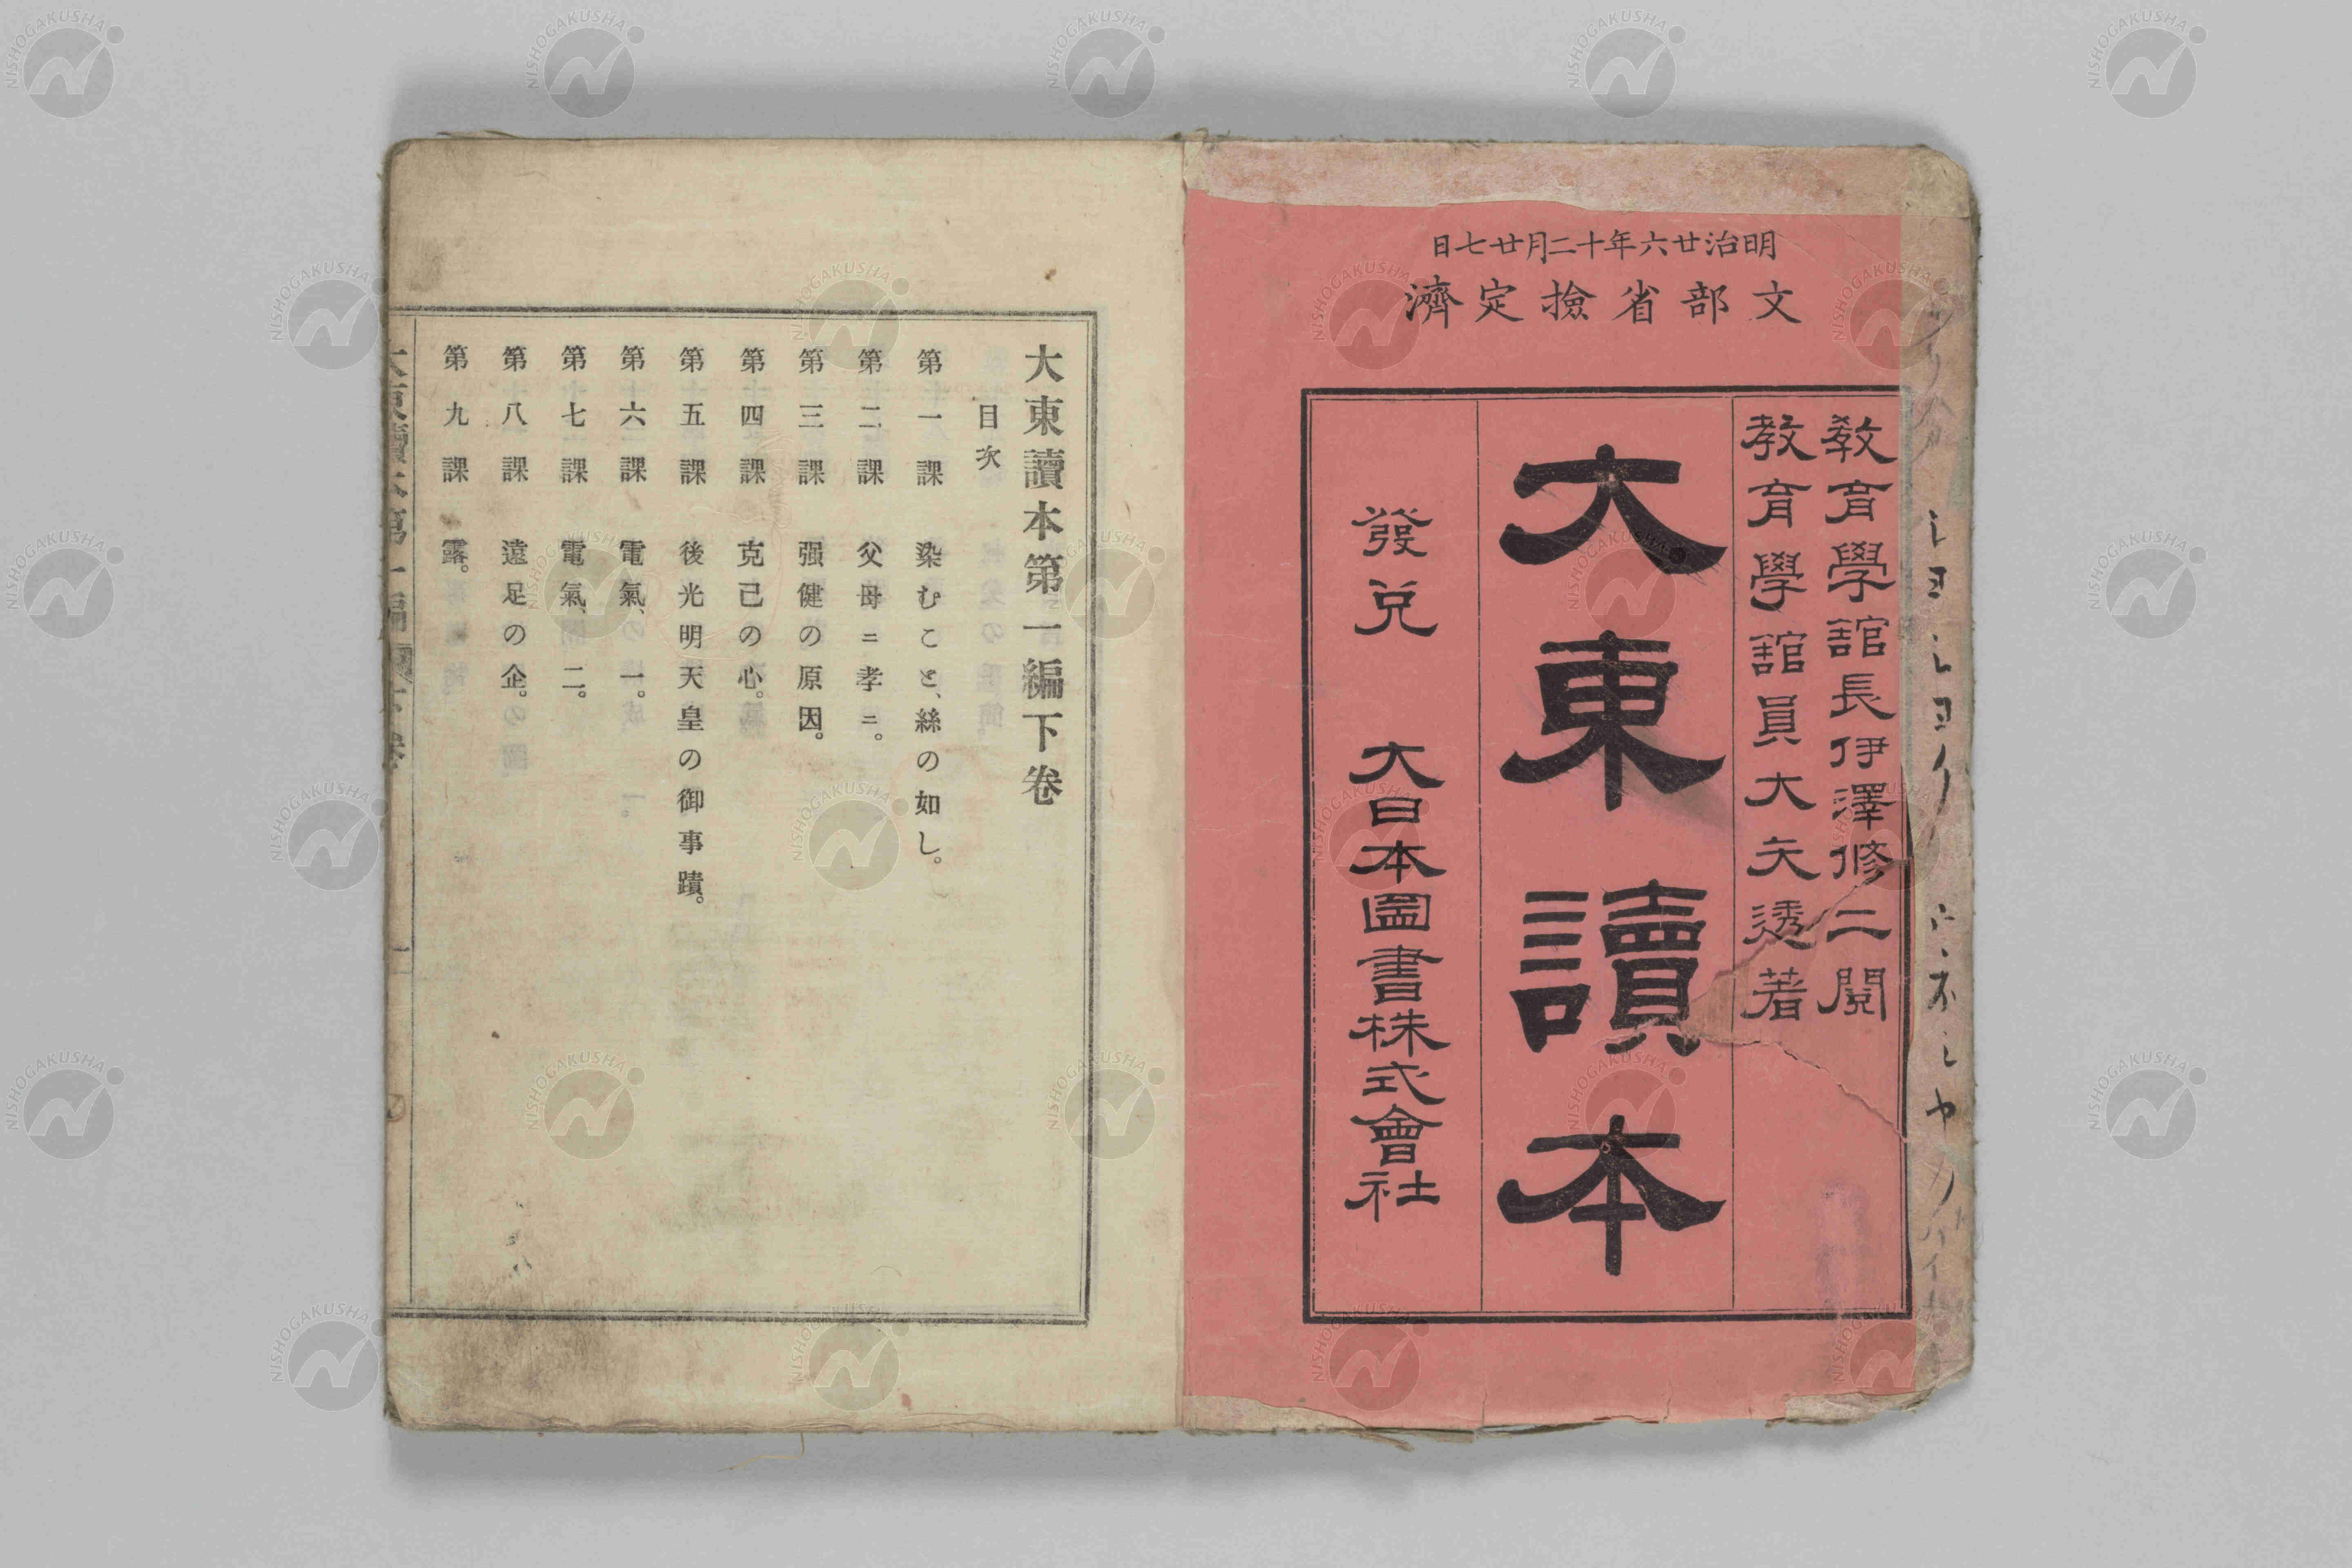 明治廿六年十二月廿七日
文部省撿定濟
教育學館長伊澤修二閱
教育學館員大矢透著
大東讀本
發兌　大日本圖書株式會社
大東讀本第一編下卷
目次
第一課　染むこと、絲の如し。
第二課　父母ニ孝ニ。
第三課　强健の原因。
第四課　克己の心。
第五課　後光明天皇の御事蹟。
第六課　電氣、一。
第七課　電氣、二。
第八課　遠足の企。
第九課　露。
NISHOGAKUSHA